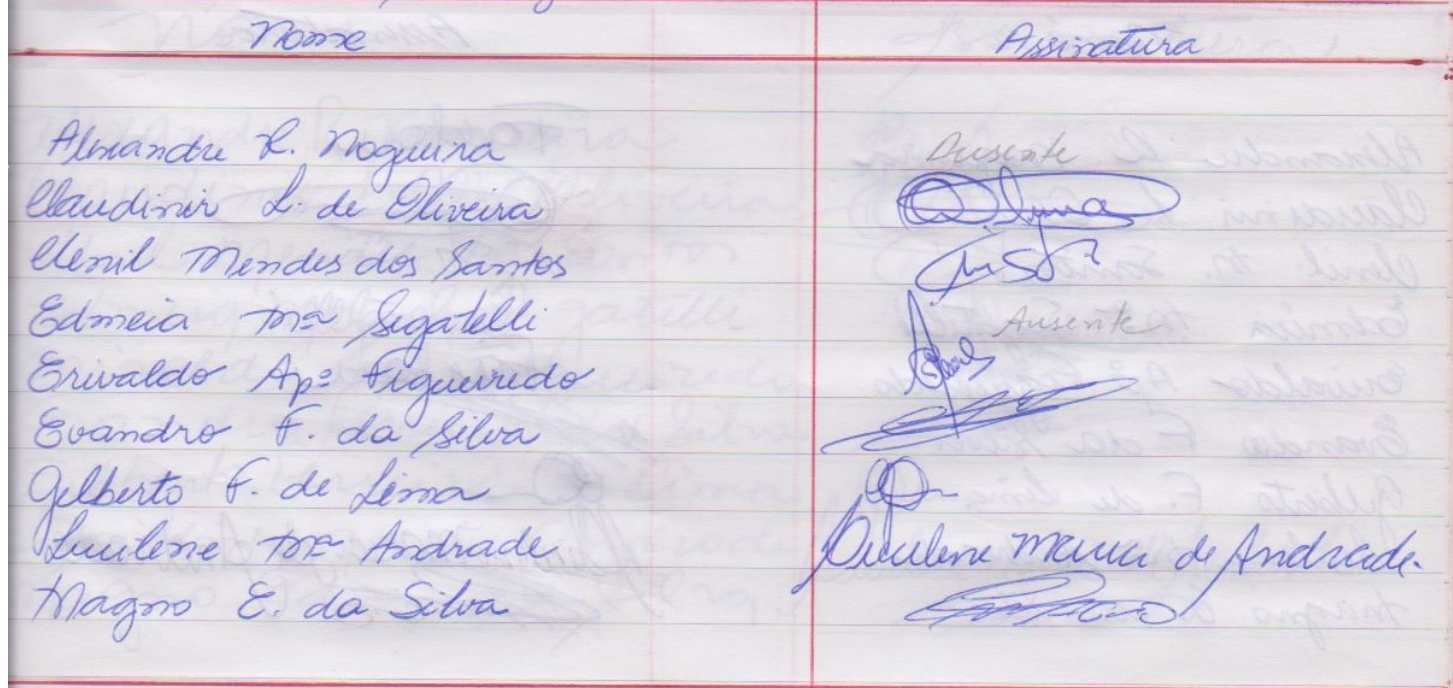 Nome Assinatura
Alexandre R. Nogueira Ausente
Claudinir L. de Oliveira
Clenil Mendes dos Santos
Edmeia Mª Segatelli Ausente
Erivaldo Apº Figueiredo
Evandro F. da Silva
Gilberto F. de Lima
Lucilene Mª Andrade Lucilene Maria de Andrade.
Magno E. da Silva